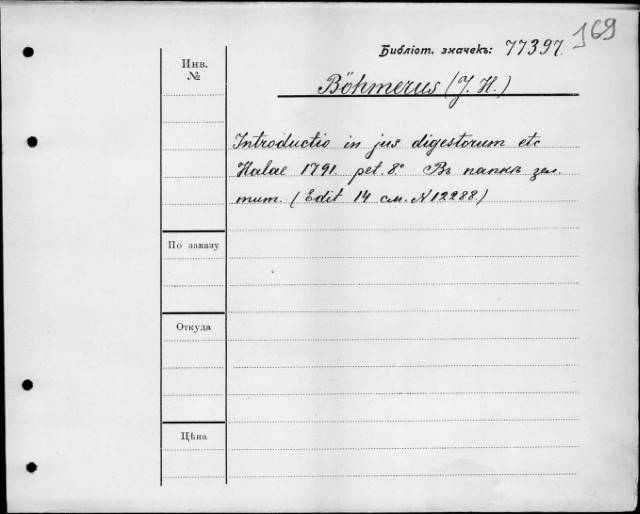 169
Библіот. значекъ: 77397.
Инв.
№
Böhmerus (J. H.)
Introductio in jus digestorum etc
Halae 1791. pet. 8° Въ папкѣ зел.
тит. (Edit 14 см. N 12288.)
По заказу
Откуда
Цѣна